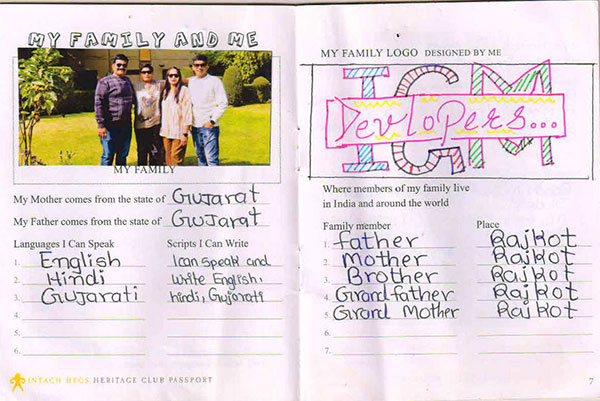 MY FAMILY AND ME
MY FAMILY
My Mother comes from the state of Gujarat
My Father comes from the state of Gujarat
Languages I Can Speak
Scripts I Can Write
1. English
2. Hindi
3. Gujarati
4.
5.
6.
I can speak and
write English,
hindi, Gujarati
INTACH HECS HERITAGE CLUB PASSPORT
MY FAMILY LOGO DESIGNED BY ME
IGM
Devlopers...
Where members of my family live
in India and around the world
Family member Place
1. father Rajkot
2. mother Rajkot
3. Brother Rajkot
4. Grand-father Rajkot
5. Grand Mother Rajkot
6.
7.
7